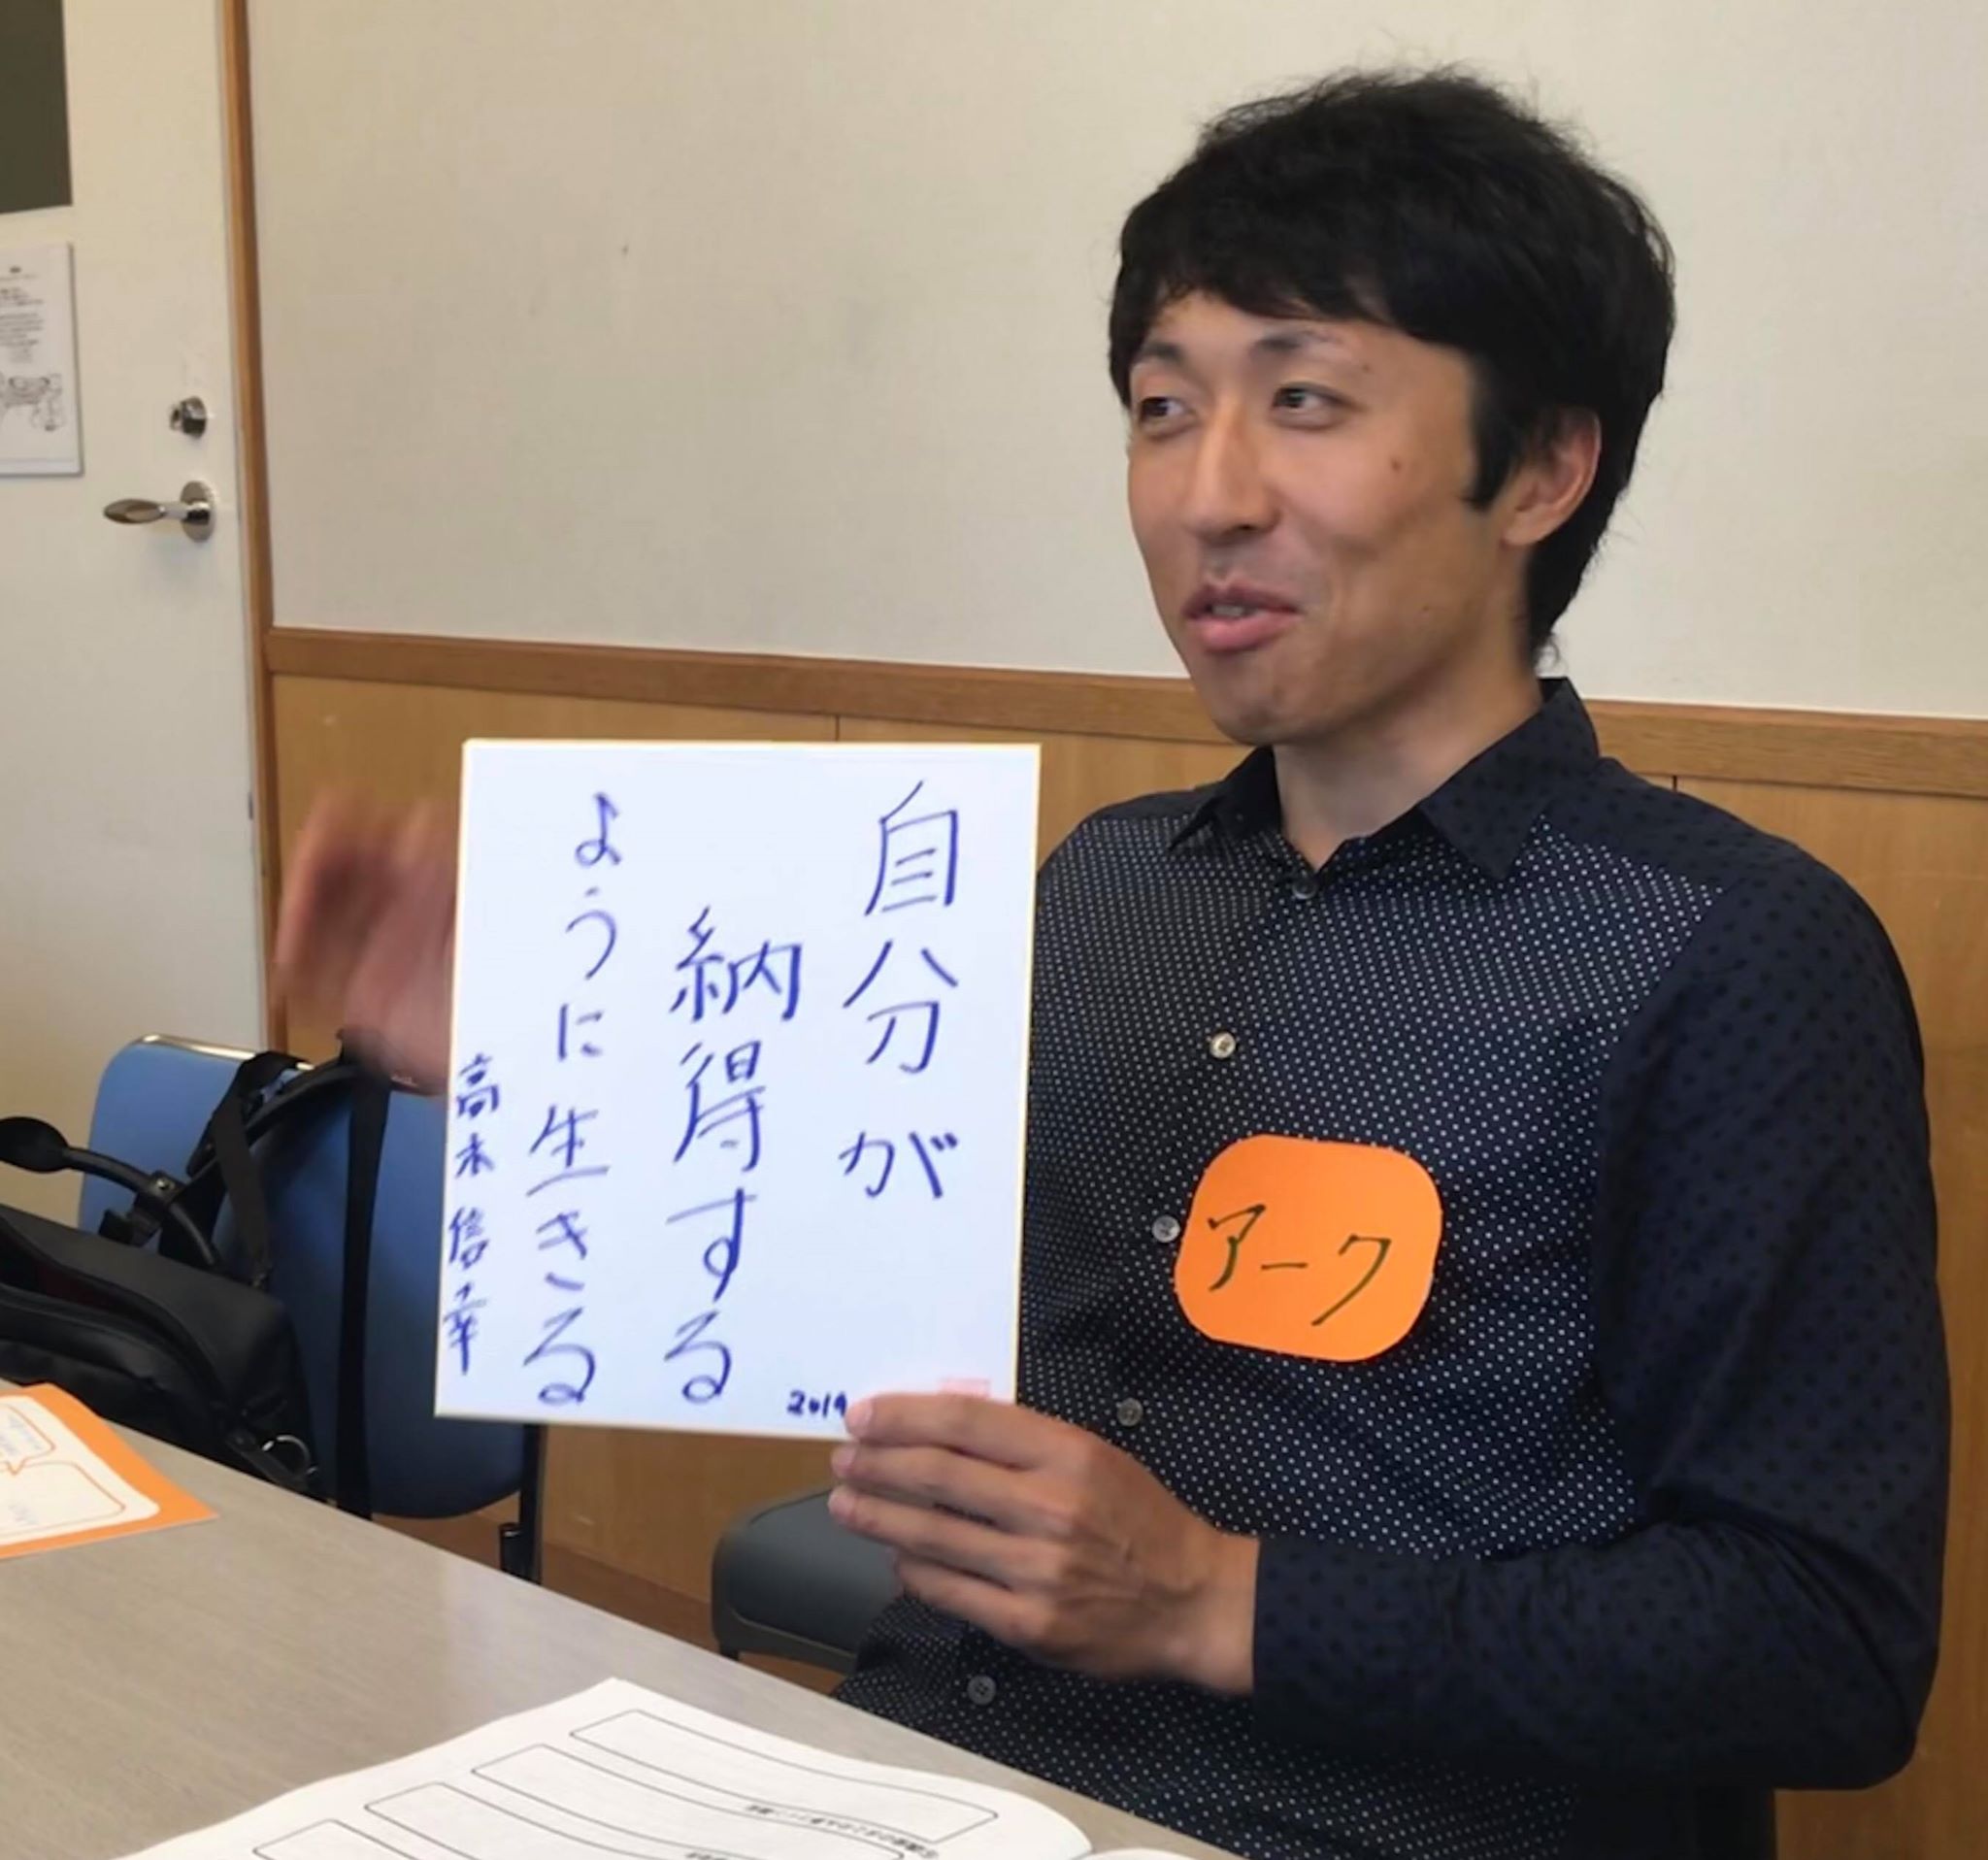 自分が
納得する
ように生きる
高木信幸
2019
アーク